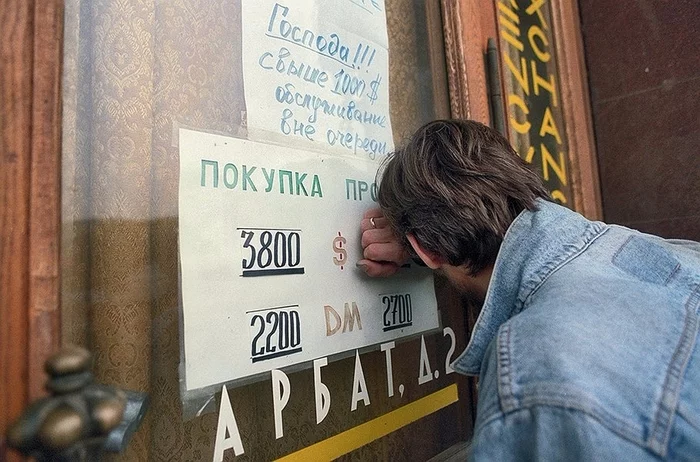 Господа!!!
свыше 1000 $
обслуживание
вне очереди
ПОКУПКА ПРО
3800 $
2200 DM 2700
АРБАТ, Д. 2
EXCHANG